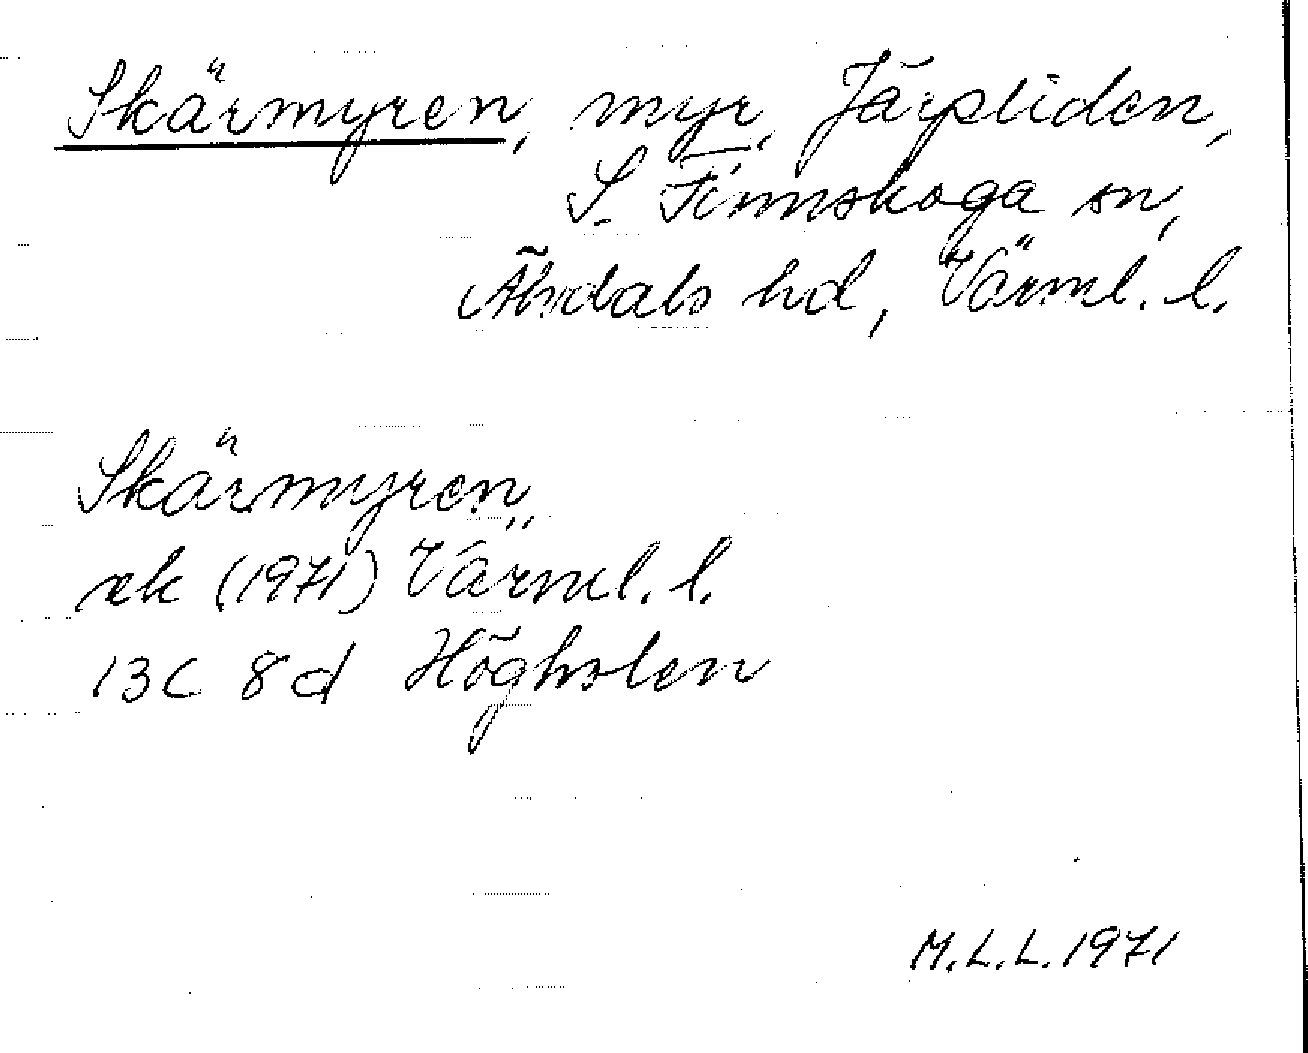 Skärmyren, myr, Järpliden,
S. Finnskoga sn,
Älvdals hd, Värml. l.
Skärmyren,
ek (1971) Värml. l.
13C 8d Högholen
M.L.L. 1971